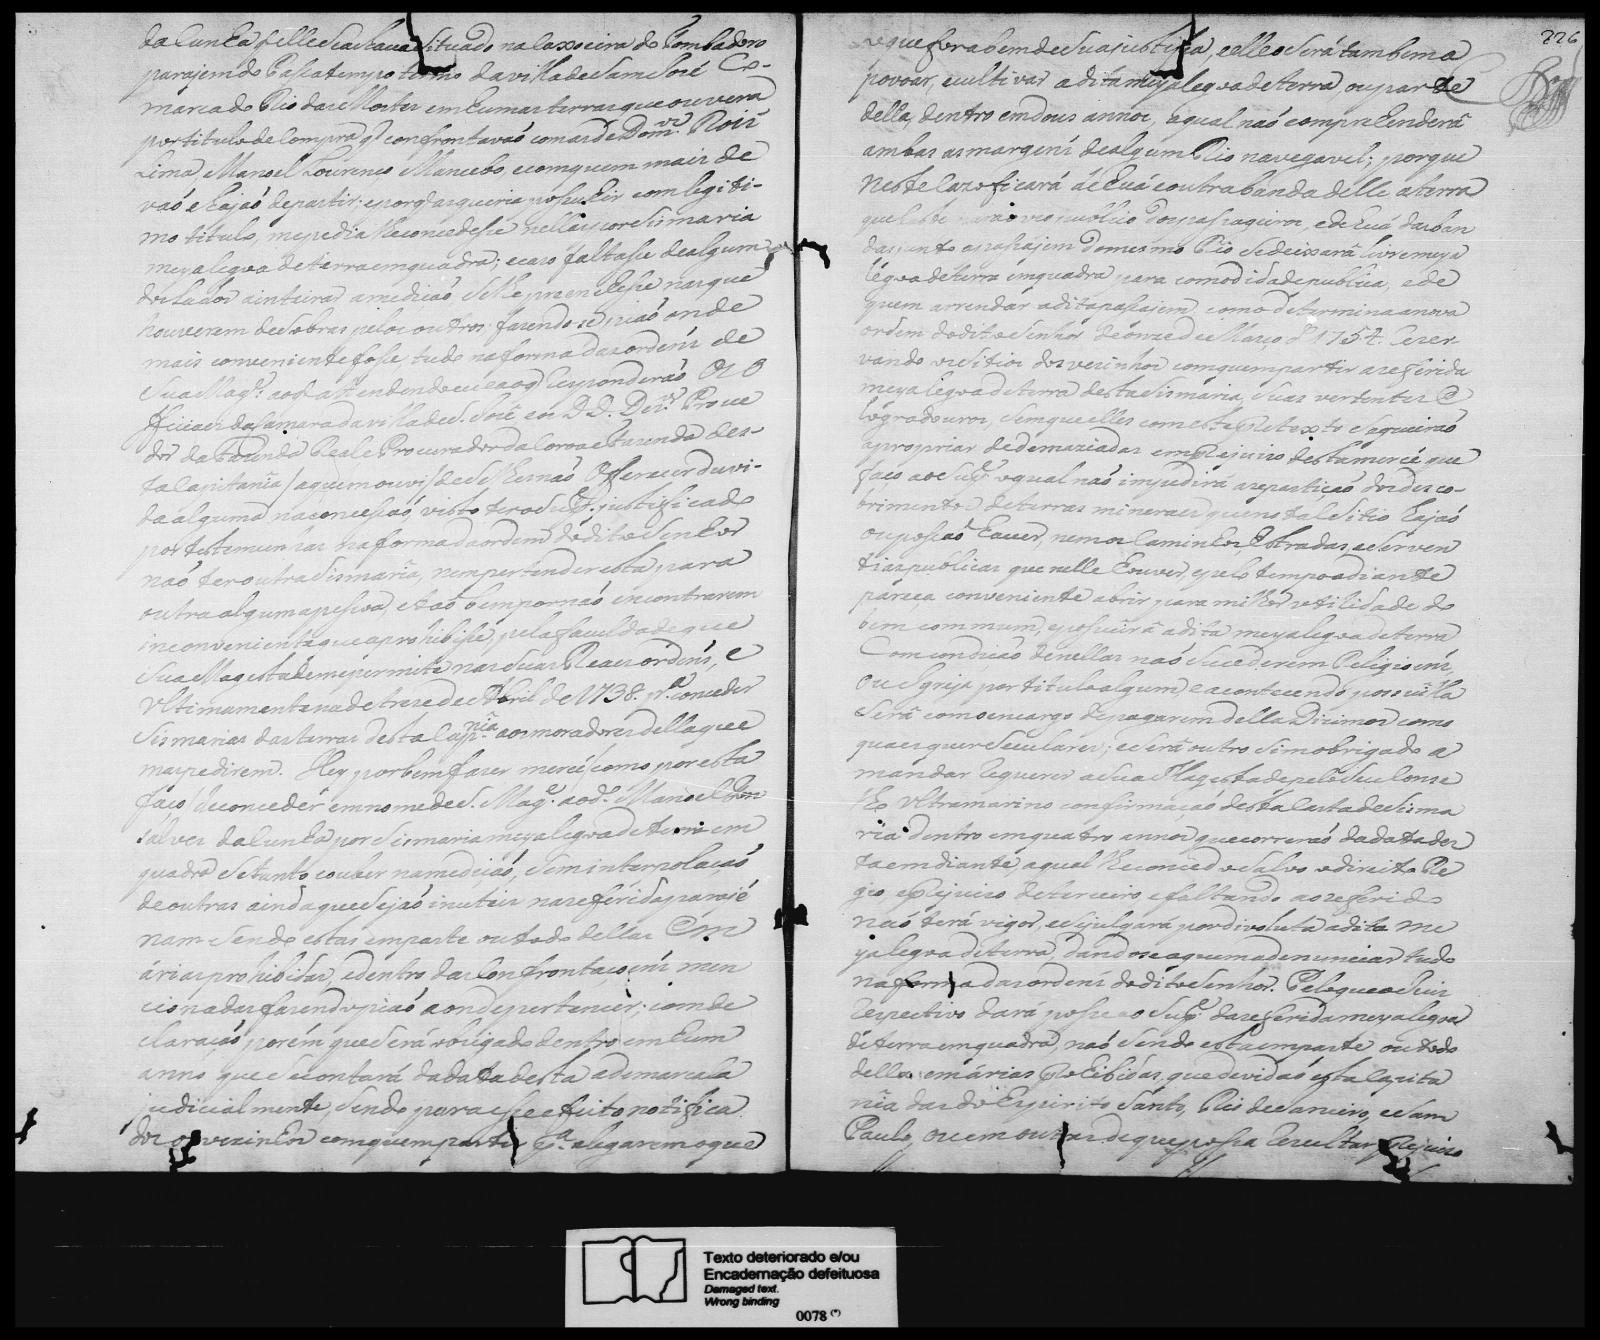 da Cunha q elle Se achava Situado na Caxoeira do Pombadoro
parajem do Passatempo termo da villa de Sam José Co-
marca do Rio das Mortes em humas terras que ouvera
por titulo de Compra q confrontavaó com as de Dom.os Roiz
Lima, Manoel Lourenço Mancebo, e com quem mais de
vaó e hajaó de partir; e porq as queria possuhir com legiti-
mo titulo, me pedia lhe concedese nellas por Sismaria
meya legoa de terra em quadra; e caso faltase de algum
dos lados a inteirar a medicaó Se lhe preenchese nas que
houverem de Sobras pelos outros fazendose piaó onde
mais conveniente fose, tudo na forma das ordens de
Sua Mag.e ao q attendendo eu e ao q Responderaó Os O
fficiaes da Camara da villa de S. José e os D.D. Dez.es Prove
dor da Fazenda Real e Procurador da Coroa e Fazenda des-
ta Capitania / a quem ouvi / de Se lhes naó Offerecer duvi-
da alguma na conceSsaó, visto ter o Sup.e justificado
por testemunhas na forma da ordem do dito Senhor
naó ter outra Sismaria, nem pertender esta para
outra alguma peSsoa, e taó bem por naó encontrarem
inconveniente que a prohibiSse, pela faculdade que
Sua Magestade me permite nas Suas Reaes ordens, e
Ultimamente na de treze de Abril de 1738. p.a conceder
Sismarias das terras desta Cap.nia aos moradores della que
mas pedirem. Hey por bem fazer mercê / como por esta
faço / de conceder em nome de S. Mag.e ao d.o Manoel Gon
salves da Cunha por Sismaria meya legoa de terra em
quadra Se tanto couber na mediçaó, Sem interpolaçaó
de outras ainda que Sejaó inuteis na referida paraje
nam Sendo estas em parte ou todo dellas Em
áreas prohibidas, e dentro das Confrontaçoens men
cionadas fazendo piaó aonde pertencer; com de
claraçaó porém que Será obrigado dentro em hum
anno que Se contará da data desta a demarcala
judicialmente, Sendo para esse effeito notifica
dos os vezinhos com quem partir p.a alegarem o que
226
ve que for a bem de Sua justiça, e elle o Será tambem a
povoar, e cultivar a dita meya legoa de terra ou parte
della, dentro em dous annos, a qual naó comprehenderá
ambas as margens de algum Rio navegavel; porque
neste cazo ficará de huá e outra banda delle a terra
que baste para o uzo publico dos pasageiros, e de huá das ban
das junto a pasajem do mesmo Rio Se deixará livre meya
legoa de terra em quadra para comodidade publica, e de
quem arrendar a dita pasajem, como determina a nova
ordem do dito Senhor de onze de Março de 1754. Reser-
vando os Sitios dos vezinhos com quem partir a referida
meya legoa de terra desta Sismaria, Suas vertentes e
logradouros, Sem que elles com este pretexto Se queiraó
apropriar de demaziadas em Prejuizo desta mercê que
faço ao Sup.e o qual naó impedirá a repartiçaó dos desco-
brimentos de terras mineraes que no tal Sitio hajaó
ou possaó haver, nem os Caminhos, Estradas, e Serven
tias publicas que nelle houver, e pelo tempo adiante
pareça conveniente abrir para milhor utilidade do
bem commum, e possuirá a dita meya legoa de terra
Com condiçaó de nellas naó Sucederem Religioens,
ou Igreja por titulo algum, e acontecendo possuila
Será com o encargo de pagarem della Dizimos como
quaesquer Seculares; e Será outro Sim obrigado a
mandar requerer a Sua Magestade pelo Seu Conse
lho Ultramarino confirmaçaó desta Carta de Sisma
ria dentro em quatro annos que correraó da data des
ta em diante, a qual lhe concedo Salvo o direito Re
gio, e prejuizo de terceiro, e faltando ao referido
naó terá vigor, e Se julgará por devoluta a dita me
ya legoa de terra, dandose a quem a denunciar tudo
na forma das ordens do dito Senhor. Pelo que o Juis
Respectivo dará posse ao Sup.e da referida meya legoa
de terra em quadra, naó Sendo esta em parte ou todo
della em áreas Prohibidas, que devidaó esta Capita
nia das do Espirito Santo, Rio de Janeiro, e Sam
Paulo, ou em outras de que possa Resultar Prejuizo
Texto deteriorado e/ou
Encadernação defeituosa
Damaged text.
Wrong binding
0078 (*)